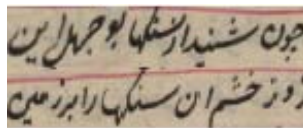 چون شنید از سنگها بو جهل این
زد ز خشم ان سنکها را بر زمین